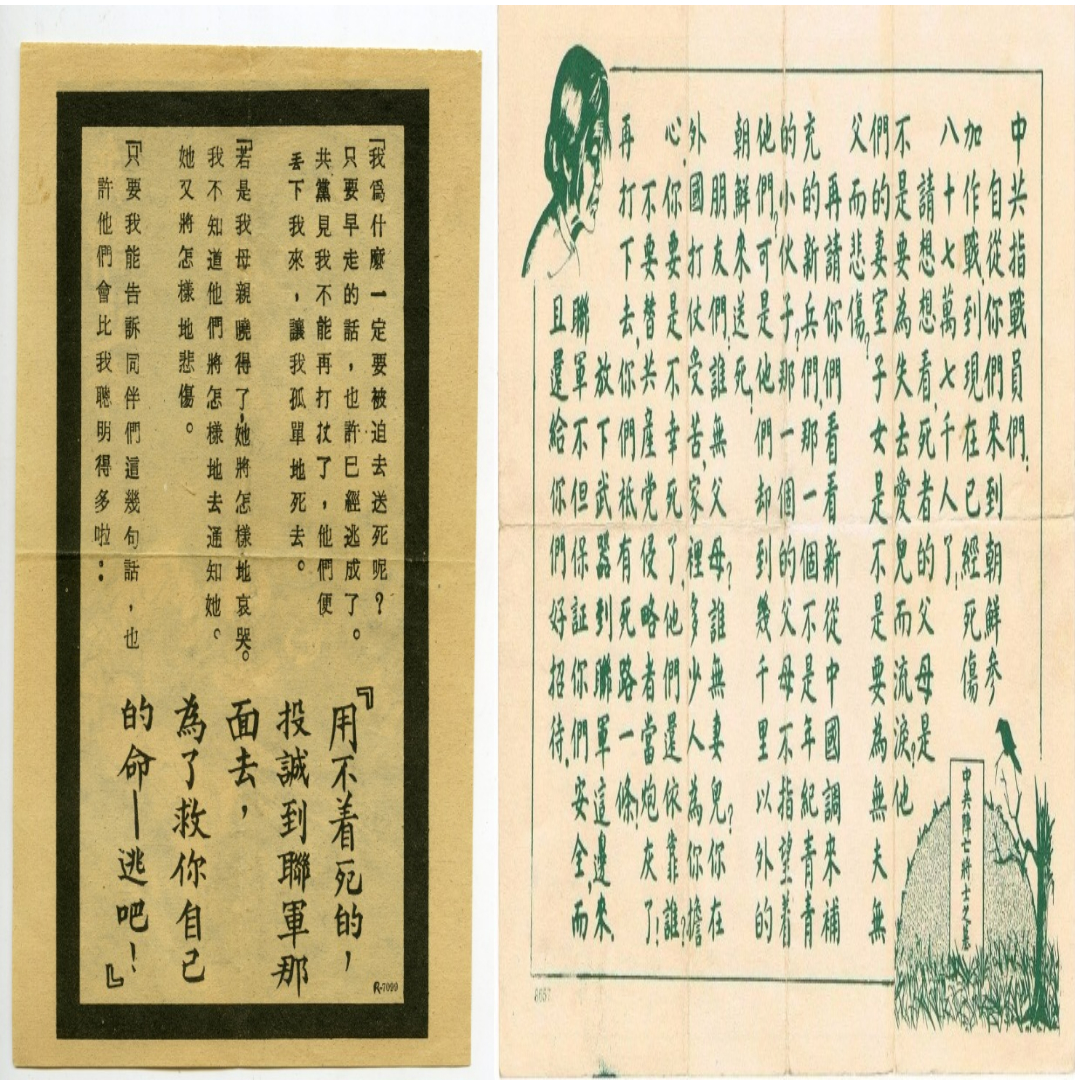 「我爲什麼一定要被迫去送死呢？
只要早走的話，也許已經逃成了。
共黨見我不能再打扙了，他們便
丟下我來，讓我孤單地死去。
「若是我母親曉得了，她將怎樣地哀哭。
我不知道他們將怎樣地去通知她。
她又將怎樣地悲傷。
「只要我能告訴同伴們這幾句話，也
許他們會比我聰明得多啦：
『用不着死的，
投誠到聯軍那
面去，
為了救你自己
的命—逃吧！』
R-7099
中共指戰員們，
自從你們來到朝鮮參
加作戰，到現在已經死傷
八十七萬七千人了，
請想想看，死者的父母是
不是要為失去愛兒而流淚？他
們的妻室子女是不是要為無夫無
父而悲傷？
再請你們看看新從中國調來補
充的新兵們，那一個不是年紀青青
的小伙子？那一個的父母不指望着
他們？可是他們却到幾千里以外的
朝鮮來送死，
朋友們，誰無父母？誰無妻兒？你在
外國打仗受苦，家裡多少人為你擔
心，你要是不幸死了，他們還依靠誰？
不要替共產党侵略者當炮灰了！
再打下去，你們祗有死路一條，
放下武器到聯軍這邊來，
聯軍不但保証你們安全，而
且還給你們好招待，
中共陣亡將士之墓
8657